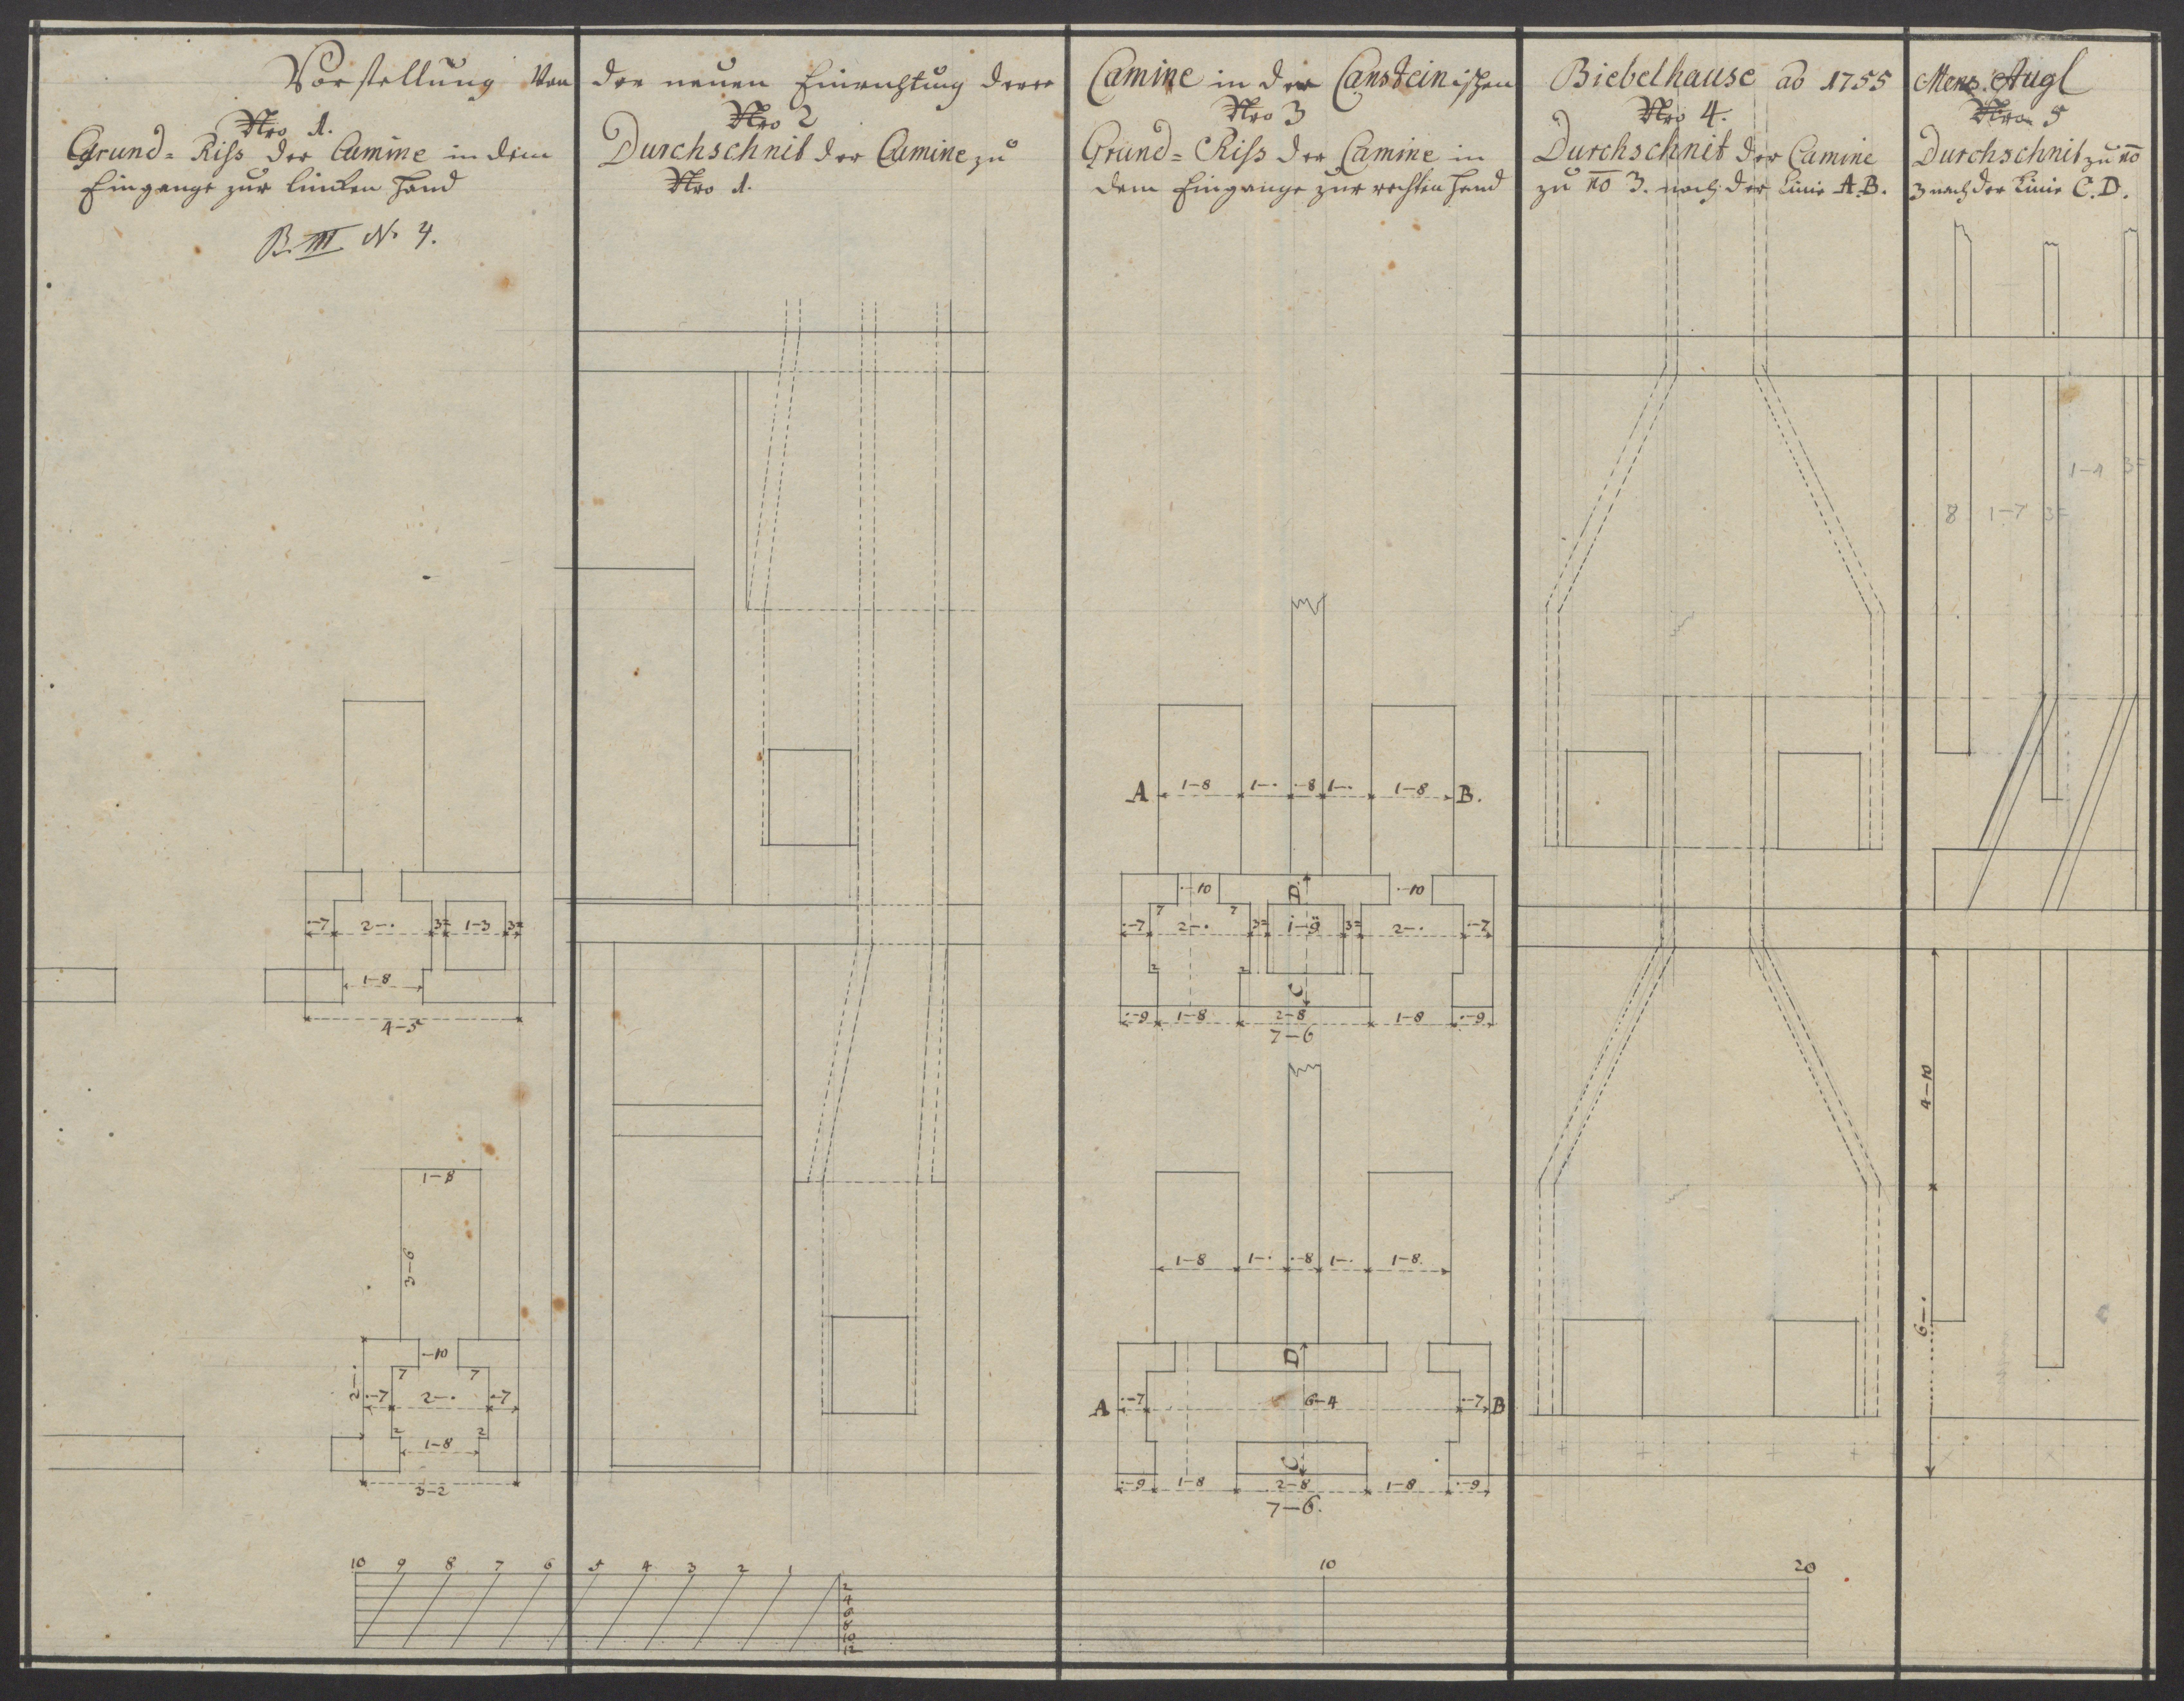 Vorstellung von der neuen Einrichtung derer Camine in der Cansteinischen Biebelhause ao 1755 Mens. Augl
Nro 1.
Grund= Riss der Camine in dem
Eingange zur lincken Hand
B. III No 4.
Nro 2
Durchschnit der Camine zu
Nro 1.
Nro 3
Grund= Riss der Camine in
dem Eingange zur rechten Hand
Nro 4.
Durchschnit der Camine
zu no 3. nach der Linie A.B.
Nro 5
Durchschnit zu no
3 nach der Linie C.D.
·-7 2-· 3= 1-3 3=
1-8
4-5
1-8
3-6
·-10
7 7
2-· ·-7 2-· ·-7
2 2
1-8
3-2
A 1-8 1-· ·-8 1-· 1-8 B.
·-10 D ·-10
7 7
·-7 2-· 3= 1-9 3= 2-· ·-7
2 2
C
·-9 1-8 2-8 1-8 ·-9
7-6
1-8 1-· ·-8 1-· 1-8.
D
A ·-7 6-4 ·-7 B
C
·-9 1-8 2-8 1-8 ·-9
7-6.
1-4 3=
8 1-7 3=
4-10
6-·
10 9 8 7 6 5 4 3 2 1 10 20
2
4
6
8
10
12